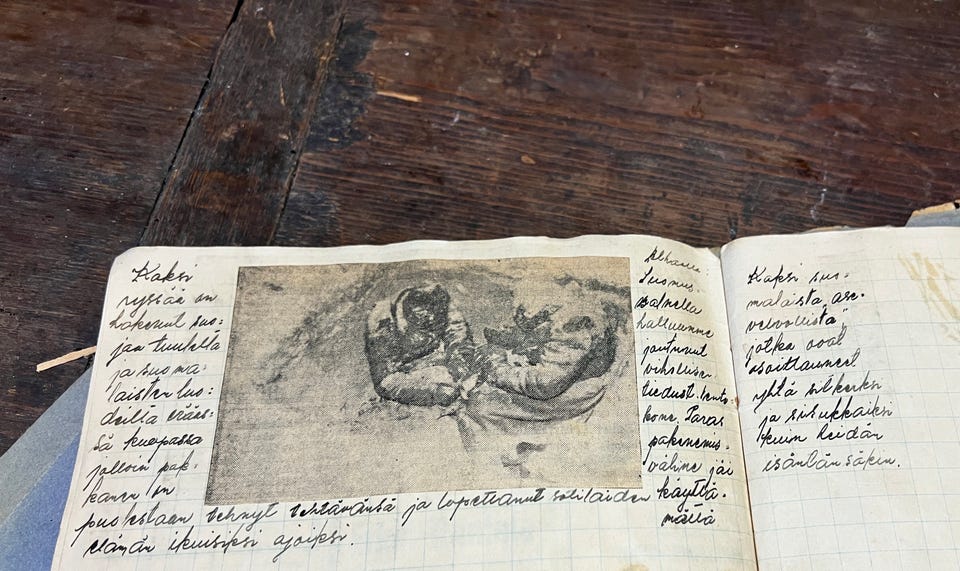 Kaksi
ryssää on
hakenut suo-
jaa tuulelta
ja suoma-
laisten luo-
deilta eräes-
sä kuopassa
jolloin pak-
kanen on
puolestaan tehnyt tehtävänsä ja lopettanut sotilaiden
elämän ikuisiksi ajoiksi.
Alhaalla:
Suomus-
salmella
haltuumme
joutunut
vihollisen
tiedust. lento
kone. Paras
pakenemus-
väline jäi
käyttä-
mättä
Kaksi suo-
malaista ase-
velvollista"
jotka ovat
osoittauneet
yhtä sitkeiksi
ja sisukkaiksi
kuin heidän
isäntänsäkin.